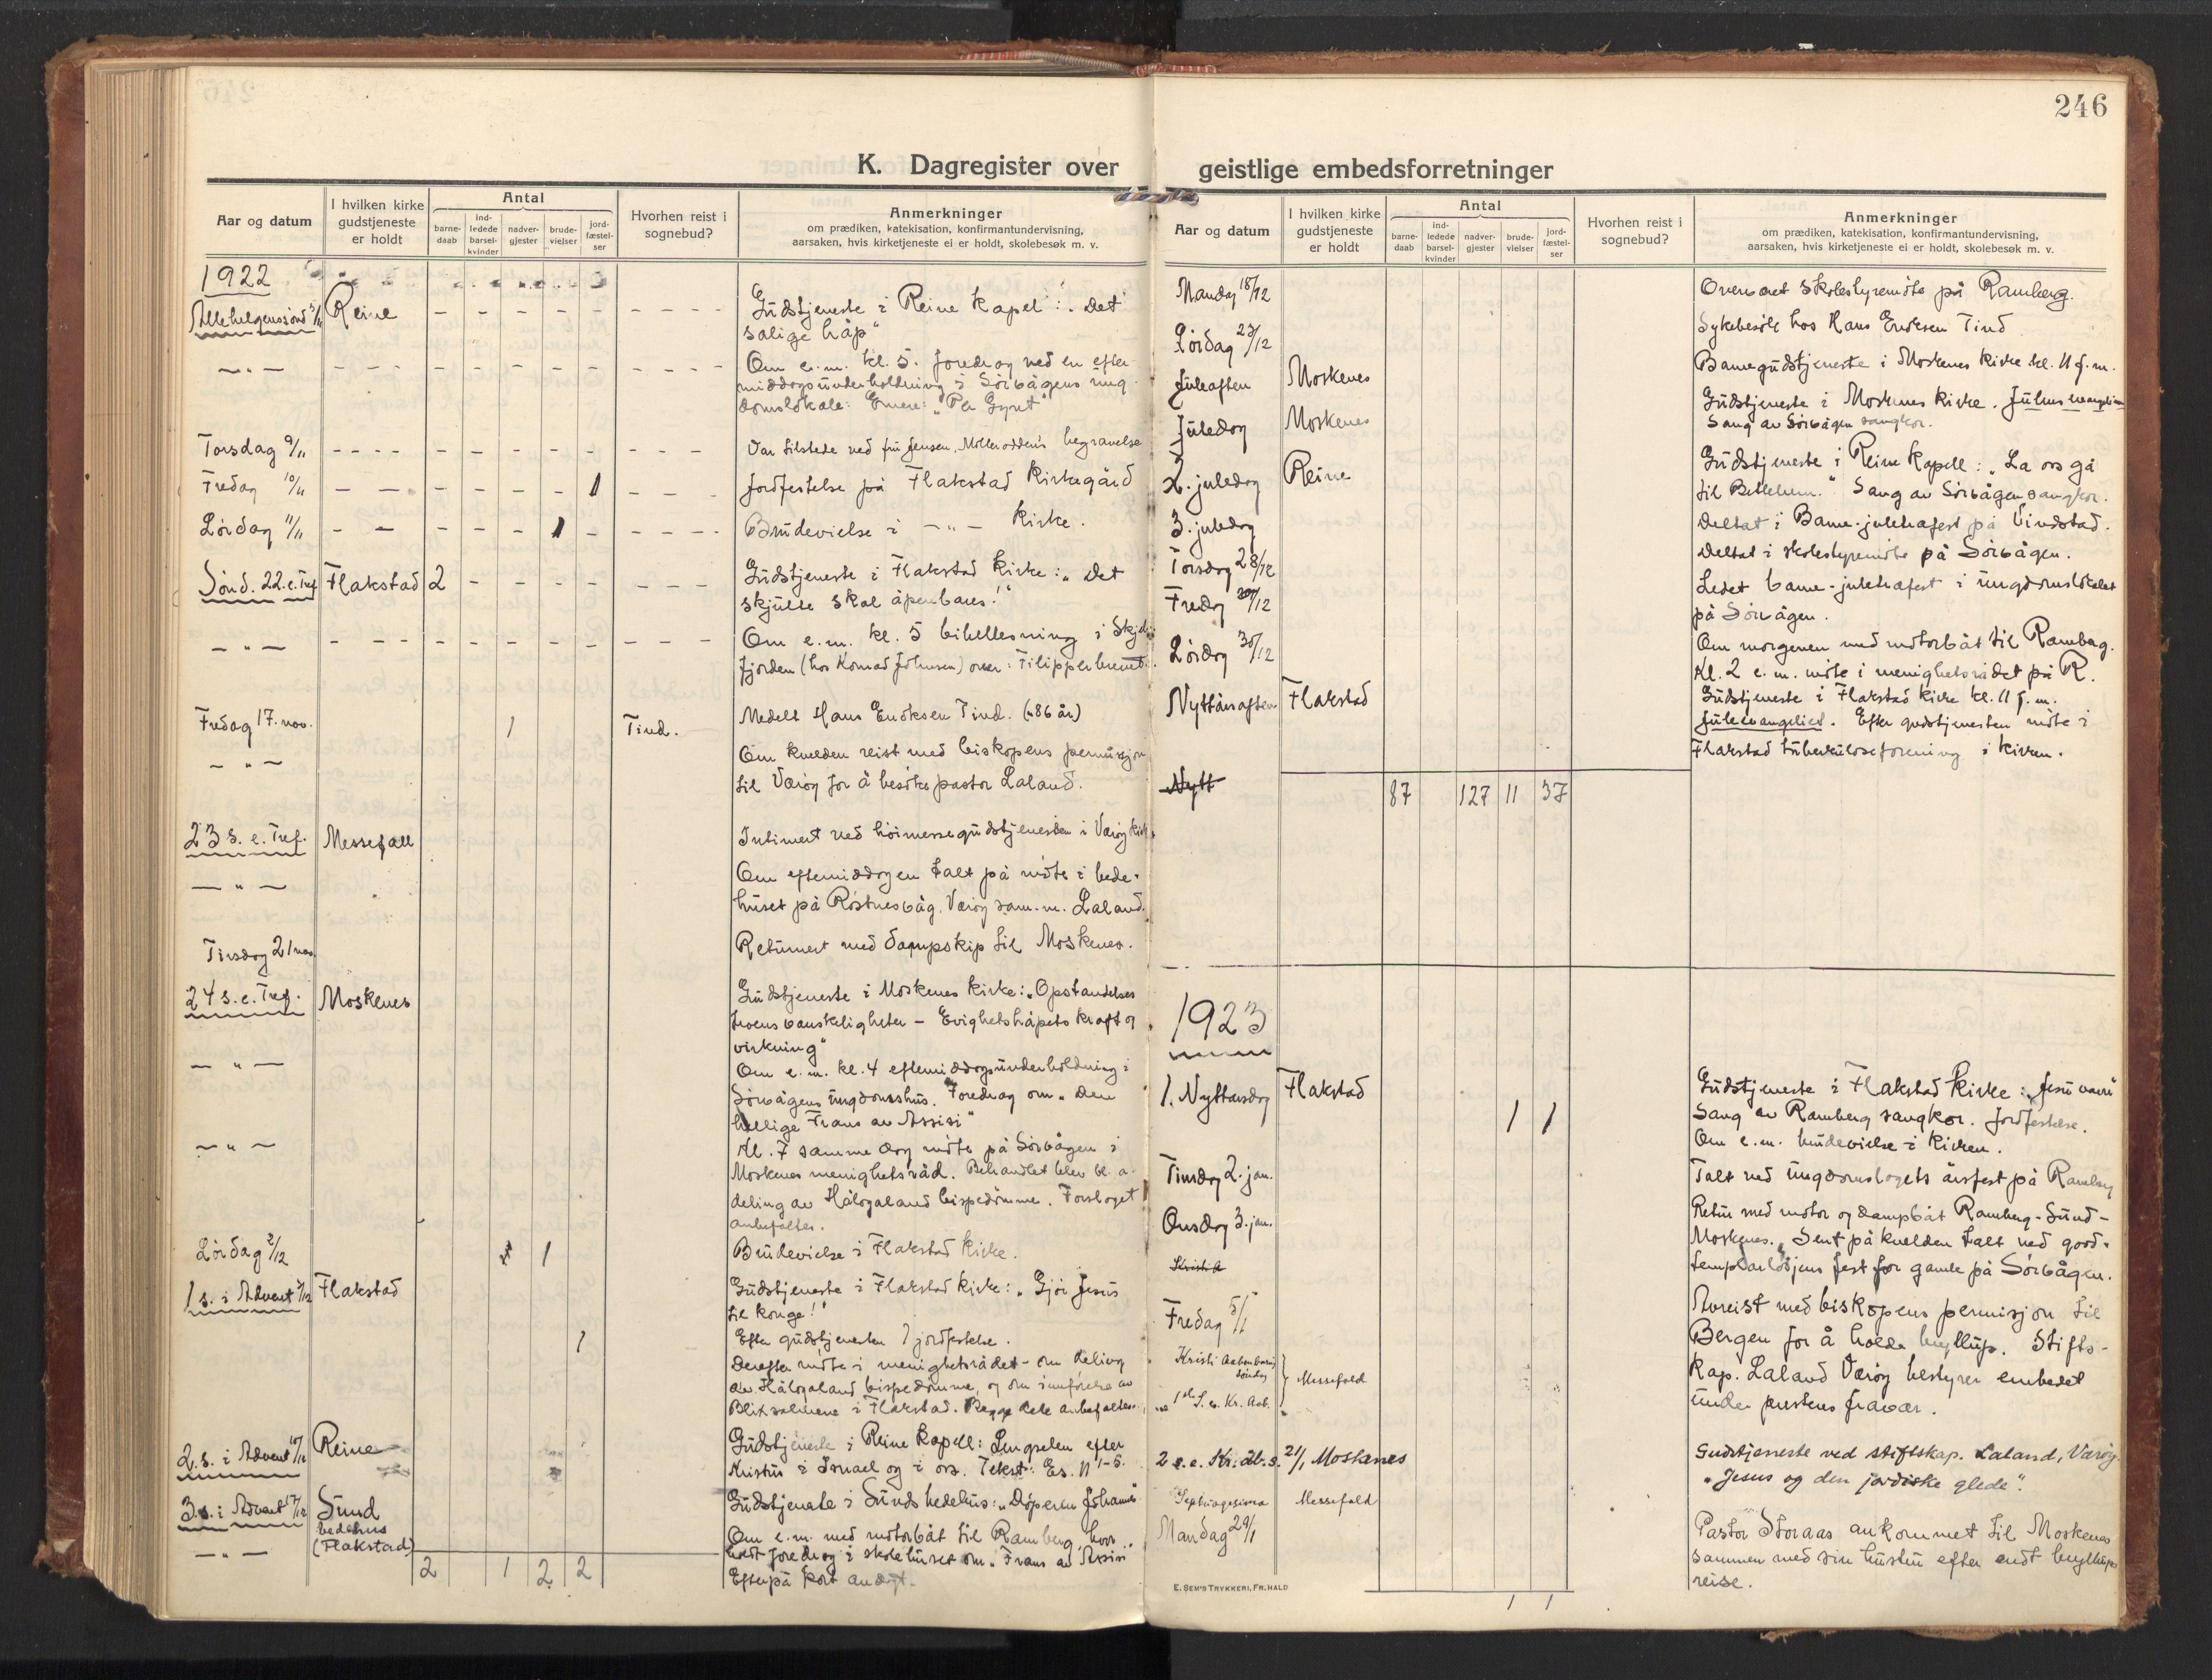 246
K. Dagregister over geistlige embedsforretninger
Aar og datum
I hvilken kirke gudstjeneste er holdt
Antal
barne-daab
ind-ledede barsel-kvinder
nadver-gjester
brude-vielser
jord-fæstel-ser
Hvorhen reist i sognebud?
Anmerkninger
om prædiken, katekisation, konfirmantundervisning,
aarsaken, hvis kirketjeneste ei er holdt, skolebesøk m. v.
1922
Allehelgenssønd 5/11 Reine Gudstjeneste i Reine Kapel: "Det
salige håp"
— " — Om e.m. kl. 5. foredrag ved en efter-
middagsunderholdning i Sörvågens ung-
domslokale: Emne: "Per Gynt"
Torsdag 9/11 Var tilstede ved fru Jensen, Mölleroddens begravelse
Fredag 10/11 1 Jordfestelse på Flakstad Kirkegård
Lördag 11/11 1 Brudevielse i — " — Kirke.
Sönd. 22. e. Tref. Flakstad 2 Gudstjeneste i Flakstad Kirke: "Det
skjulte skal åpenbares!"
— " — Om e.m. kl. 5 bibellesning i Skjel-
fjorden (hos Konrad Johnsen) over: Filipperbrevet.
Fredag 17. nov. 1 Tind. Medelt Hans Enoksen Tind. (86 år)
— " — Om kvelden reist med biskopens permisjon
til Væröy for å besöke pastor Laland.
23 s. e. Tref. Messefall Intimert ved höimessegudstjenesten i Væröy kirke
— " — Om eftermiddagen talt på möte i bede-
huset på Röstnesvåg, Væröy sam. m. Laland.
Tirsdag 21 nov. Returnert med dampskip til Moskenes.
24 s. e. Tref. Moskenes Gudstjeneste i Moskenes Kirke: "Opstandelses
troens vanskeligheter – Evighetshåpets kraft og
virkning"
— " — Om e.m. kl. 4 eftermiddagsunderholdning i
Sörvågens ungdomshus. Foredrag om "Den
hellige Frans av Assisi"
— " — Kl. 7 samme dag möte på Sörvågen i
Moskenes menighetsråd. Behandlet blev bl. a.
deling av Hålogaland bispedömme. Forslaget
anbefaltes.
Lördag 2/12 1 Brudevielse i Flakstad Kirke.
1 s. i Advent 3/12 Flakstad Gudstjeneste i Flakstad Kirke: "Gjör Jesus
til konge!"
1 Efter gudstjenesten 1 jordfestelse.
Derefter möte i menighetsrådet – om deling
av Hålogaland bispedömme, og om innförelse av
Blixsalmene i Flakstad. Begge dele anbefaltes.
2. s. i Advent 10/12 Reine Gudstjeneste i Reine Kapell: Lengselen efter
Kristus i Israel og i oss. Tekst: Es. 11 1-5.
3. s. i Advent 17/12 Sund Gudstjeneste i Sunds bedehus: "Döperen Johannes"
bedehus
(Flakstad)
— " — Om e.m. med motorbåt til Ramberg, hvor
holdt foredrag i skolehuset om "Frans av Assisi"
Efterpå kort andagt.
2 1 2 2
Aar og datum
I hvilken kirke gudstjeneste er holdt
Antal
barne-daab
ind-ledede barsel-kvinder
nadver-gjester
brude-vielser
jord-fæstel-ser
Hvorhen reist i sognebud?
Anmerkninger
om prædiken, katekisation, konfirmantundervisning,
aarsaken, hvis kirketjeneste ei er holdt, skolebesøk m. v.
Mandag 18/12 Overværet skolestyremöte på Ramberg.
Lördag 23/12 Sykebesök hos Hans Enoksen Tind
Juleaften Moskenes Barnegudstjeneste i Moskenes Kirke kl. 11 f.m.
Juledag Moskenes Gudstjeneste i Moskenes Kirke. Julens evangelium
Sang av Sörvågen sangkor.
2. juledag Reine Gudstjeneste i Reine Kapell: "La oss gå
til Betlehem." Sang av Sörvågen sangkor.
3. juledag Deltat i Barne-juletrefest på Vindstad.
Torsdag 28/12 Deltat i skolestyremöte på Sörvågen.
Fredag 29/12 Ledet barne-juletrefest i ungdomslokalet
på Sörvågen.
Lördag 30/12 Om morgenen med motorbåt til Ramberg.
Kl. 2 e.m. möte i menighetsrådet på R.
Nyttårsaften Flakstad Gudstjeneste i Flakstad Kirke kl. 11 f.m.
Juleevangeliet. Efter gudstjenesten möte i
Flakstad tuberkuloseforening i kirken.
Nytt
87 127 11 37
1923
1. Nyttårsdag Flakstad 1 1 Gudstjeneste i Flakstad Kirke: "Jesu navn"
Sang av Ramberg sangkor. Jordfestelse.
Om e.m. brudevielse i kirken.
Tirsdag 2. jan. Talt ved ungdomslagets årsfest på Ramberg
Onsdag 3. jan. Retur med motor og dampbåt Ramberg – Sund –
Moskenes. Sent på kvelden talt ved good-
templarlosjens fest for gamle på Sörvågen.
Fredag 5/1 Avreist med biskopens permisjon til
Bergen for å holde bryllup. Stifts-
kap. Laland Væröy bestyrer embedet
under prestens fravær.
Kristi Aabenbarings söndag
1ste S. e. Kr. Aab. Messefald
2 s. e. Kr. åb. s. 21/1 Moskenes Gudstjeneste ved stiftskap. Laland, Væröy
"Jesus og den jordiske glede".
Septuagesima Messefald
Mandag 29/1 Pastor Storaas ankommet til Moskenes
sammen med sin hustru efter endt bryllups
reise.
E. SEM'S TRYKKERI, FR.HALD
1 1